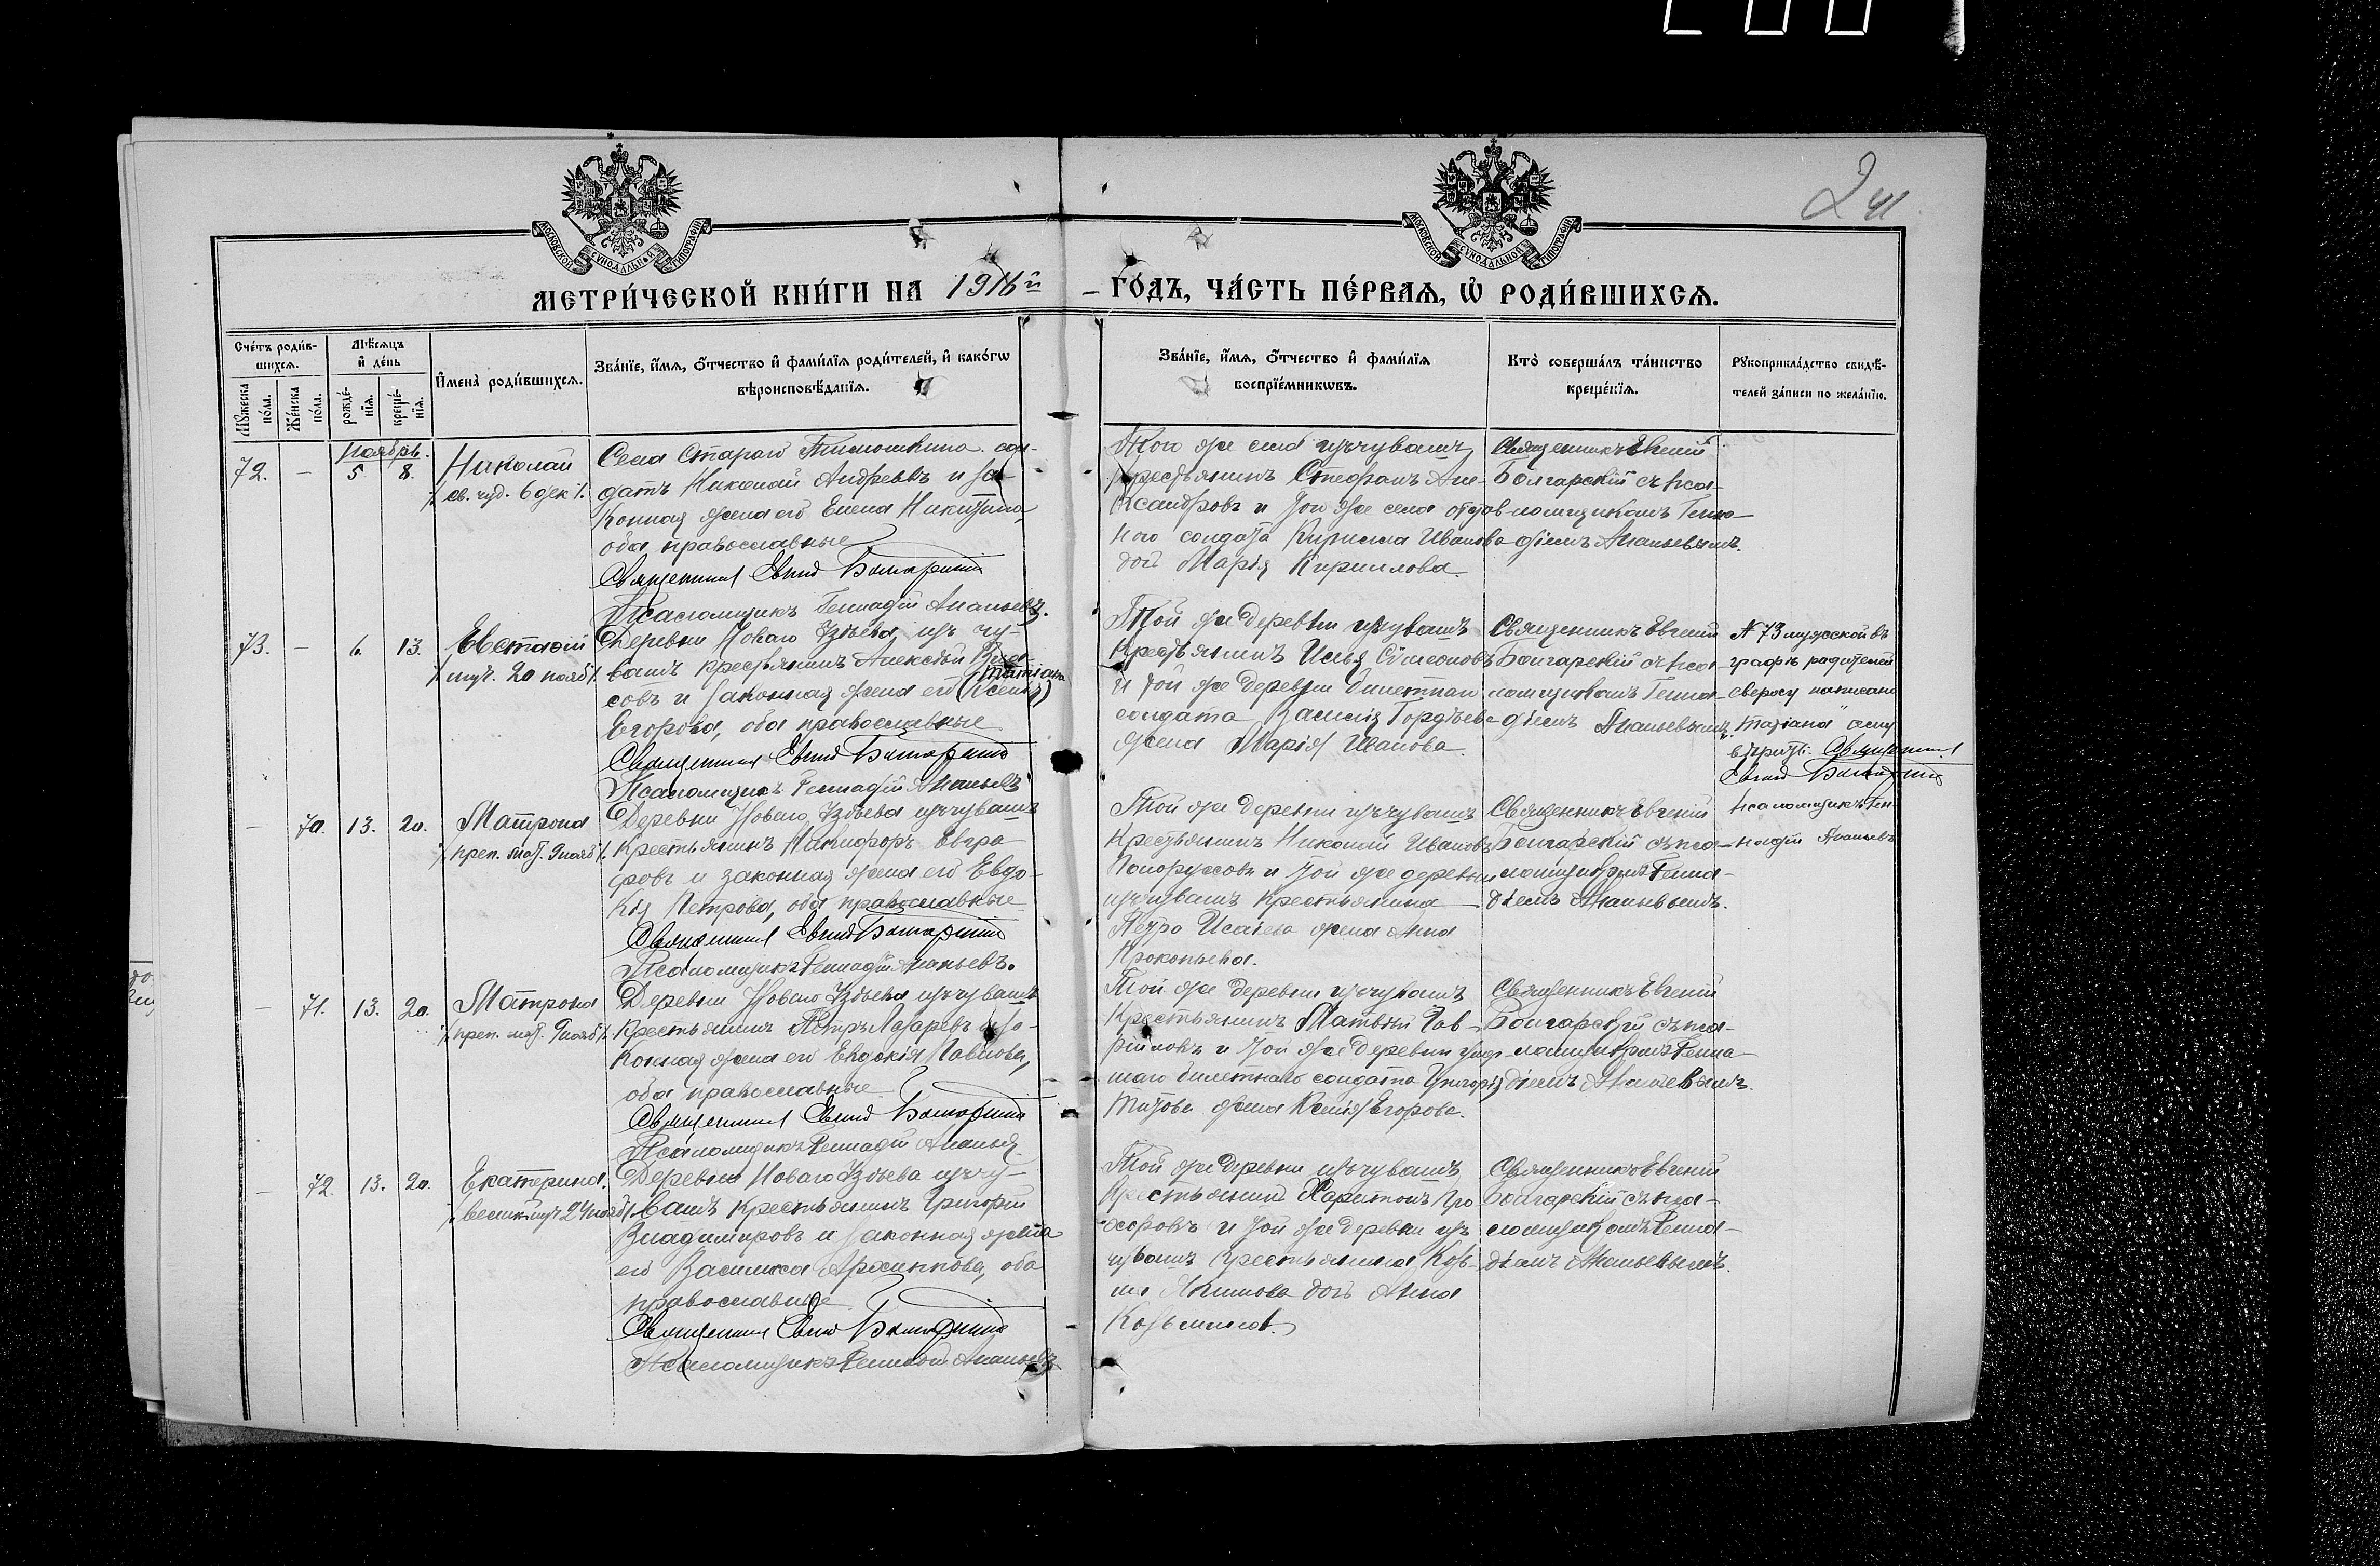 241
МОСКОВСКОЙ СѴНОДАЛЬНОЙ ТИПОГРАФІИ
МОСКОВСКОЙ СѴНОДАЛЬНОЙ ТИПОГРАФІИ
МЕТРИ́ЧЕСКОЙ КНИ́ГИ НА 1916й
ГО́ДЪ, ЧА́СТЬ ПЕ́РВАЯ, Ѡ҆ РОДИ́ВШИХСЯ.
Сче́тъ роди́в-
шихся.
Мѣ́сяцъ
и҆ де́нь
Мꙋ́жеска по́ла.
Же́нска по́ла.
рожде́-
нїѧ.
креще́-
нїѧ.
И҆мена̀ роди́вшихся.
Зва́нїе, и҆́мѧ, ѻ҆́тчество и҆ фами́лїѧ роди́телей, и҆ како́гѡ
вѣроисповѣ́данїѧ.
Зва́нїе, и҆́мѧ, ѻ҆́тчество и҆ фами́лїѧ
воспрїе́мникѡвъ.
Кто̀ соверша́лъ та́инство
креще́нїѧ.
Рꙋкоприкла́дство свидѣ́-
телей за́писи по жела́нїю.
Ноябрь.
72. — 5. 8. Николай
св. чуд. 6 дек.
Села Стараго Тимошкина сол-
датъ Николай Андреевъ и за-
конная жена его Елена Никитина,
оба православные
Священникъ Евгеній Болгарскій
Псаломщикъ Геннадій Ананьевъ.
Того же села изъ чувашъ
крестьянинъ Стефанъ Але-
ксандровъ и той же села отстав-
ного солдата Кирилла Иванова
дочь Марія Кириллова.
Священникъ Евгеній
Болгарскій съ пса-
ломщикомъ Генна-
діемъ Ананьевымъ.
73. — 6. 13. Евстафій
муч. 20 нояб.
Деревни Новаго Узѣева изъ чу-
вашъ крестьянинъ Алексѣй
совъ и законная жена его (Ксенія) Татіана
Егорова, оба православные
Священникъ Евгеній Болгарскій
Псаломщикъ Геннадій Ананьевъ
Той же деревни изъ чувашъ
крестьянинъ Илья Симеоновъ
и той же деревни билетнаго
солдата Василія Гордѣева
жена Марія Иванова.
Священникъ Евгеній
Болгарскій съ пса-
ломщикомъ Генна-
діемъ Ананьевымъ.
№ 73 мужской въ
графѣ родителей
сверху написано
"Татіана"
Священникъ
Евгеній Болгарскій
псаломщикъ Ген-
надій Ананьевъ
— 70. 13. 20. Матрона
преп. мат. 9 нояб.
Деревни Новаго Узѣева изъ чувашъ
крестьянинъ Никифоръ Евгра-
фовъ и законная жена его Евдо-
кія Петрова, оба православные
Священникъ Евгеній Болгарскій
Псаломщикъ Геннадій Ананьевъ.
Той же деревни изъ чувашъ
крестьянинъ Николай Ивановъ
и той же деревни
изъ чувашъ крестьянина
Петра Исаева жена Анна
Прокопьева.
Священникъ Евгеній
Болгарскій съ пса-
ломщикомъ Генна-
діемъ Ананьевымъ.
— 71. 13. 20. Матрона
преп. мат. 9 нояб.
Деревни Новаго Узѣева изъ чувашъ
крестьянинъ Петръ Лазаревъ и за-
конная жена его Евдокія Павлова,
оба православные
Священникъ Евгеній Болгарскій
Псаломщикъ Геннадій Ананьевъ
Той же деревни изъ чувашъ
крестьянинъ Матвѣй Гав-
риловъ и той же деревни умер-
шаго билетнаго солдата Григорія
Титова жена Ксенія Егорова.
Священникъ Евгеній
Болгарскій съ пса-
ломщикомъ Генна-
діемъ Ананьевымъ.
— 72. 13. 20. Екатерина.
велик. муч. 24 нояб.
Деревни Новаго Узѣева изъ чу-
вашъ крестьянинъ Григорій
Владимировъ и законная жена
его Василиса Архиппова, оба
православные
Священникъ Евгеній Болгарскій
Псаломщикъ Геннадій Ананьевъ
Той же деревни изъ чувашъ
крестьянинъ Харитонъ
и той же деревни изъ
чувашъ крестьянина Козь-
мы дочь Анна
Козьмина.
Священникъ Евгеній
Болгарскій съ пса-
ломщикомъ Генна-
діемъ Ананьевымъ.